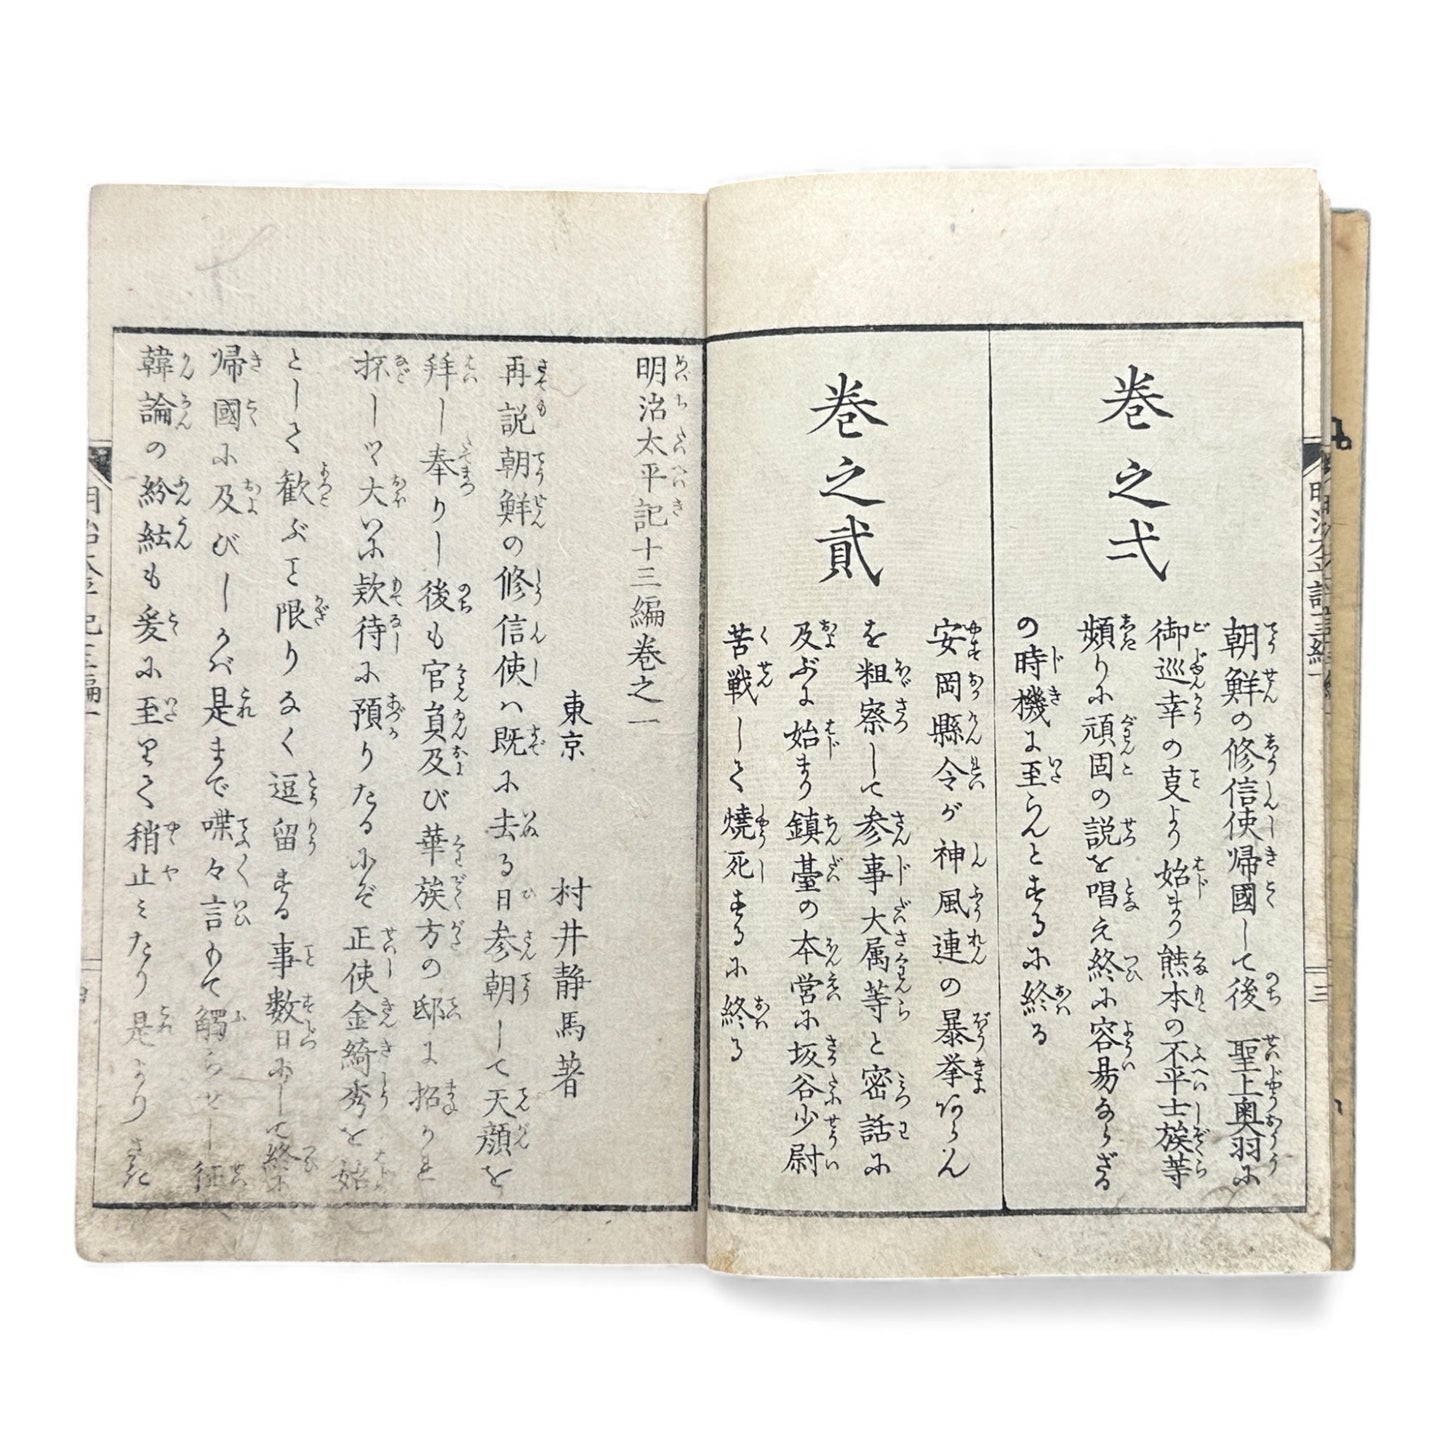 巻之弌
朝鮮の修信使帰國して後 聖上奥羽に
御巡幸の支より始まり熊本の不平士族等
頻りに頑固の説を唱え終に容易ならざる
の時機に至らんとするに終る
巻之貳
安岡縣令が神風連の暴挙あらん
を粗察して参事大属等と密話に
及ぶに始まり鎮臺の本営に坂谷少尉
苦戦して焼死するに終る
明治太平記十三編巻之一
東京 村井静馬著
再説朝鮮の修信使ハ既に去る日参朝して天顔を
拜し奉りし後も官員及び華族方の邸に招かれ
抔しツ大いに欵待に預りたるにぞ正使金綺秀を始
として歓ぶこと限りなく逗留する事数日にして終に
帰國に及びしかバ是まで喋々言もて觸らせし征
韓論の紛紜も爰に至りて稍止ミたり是より
明治太平記十三編一